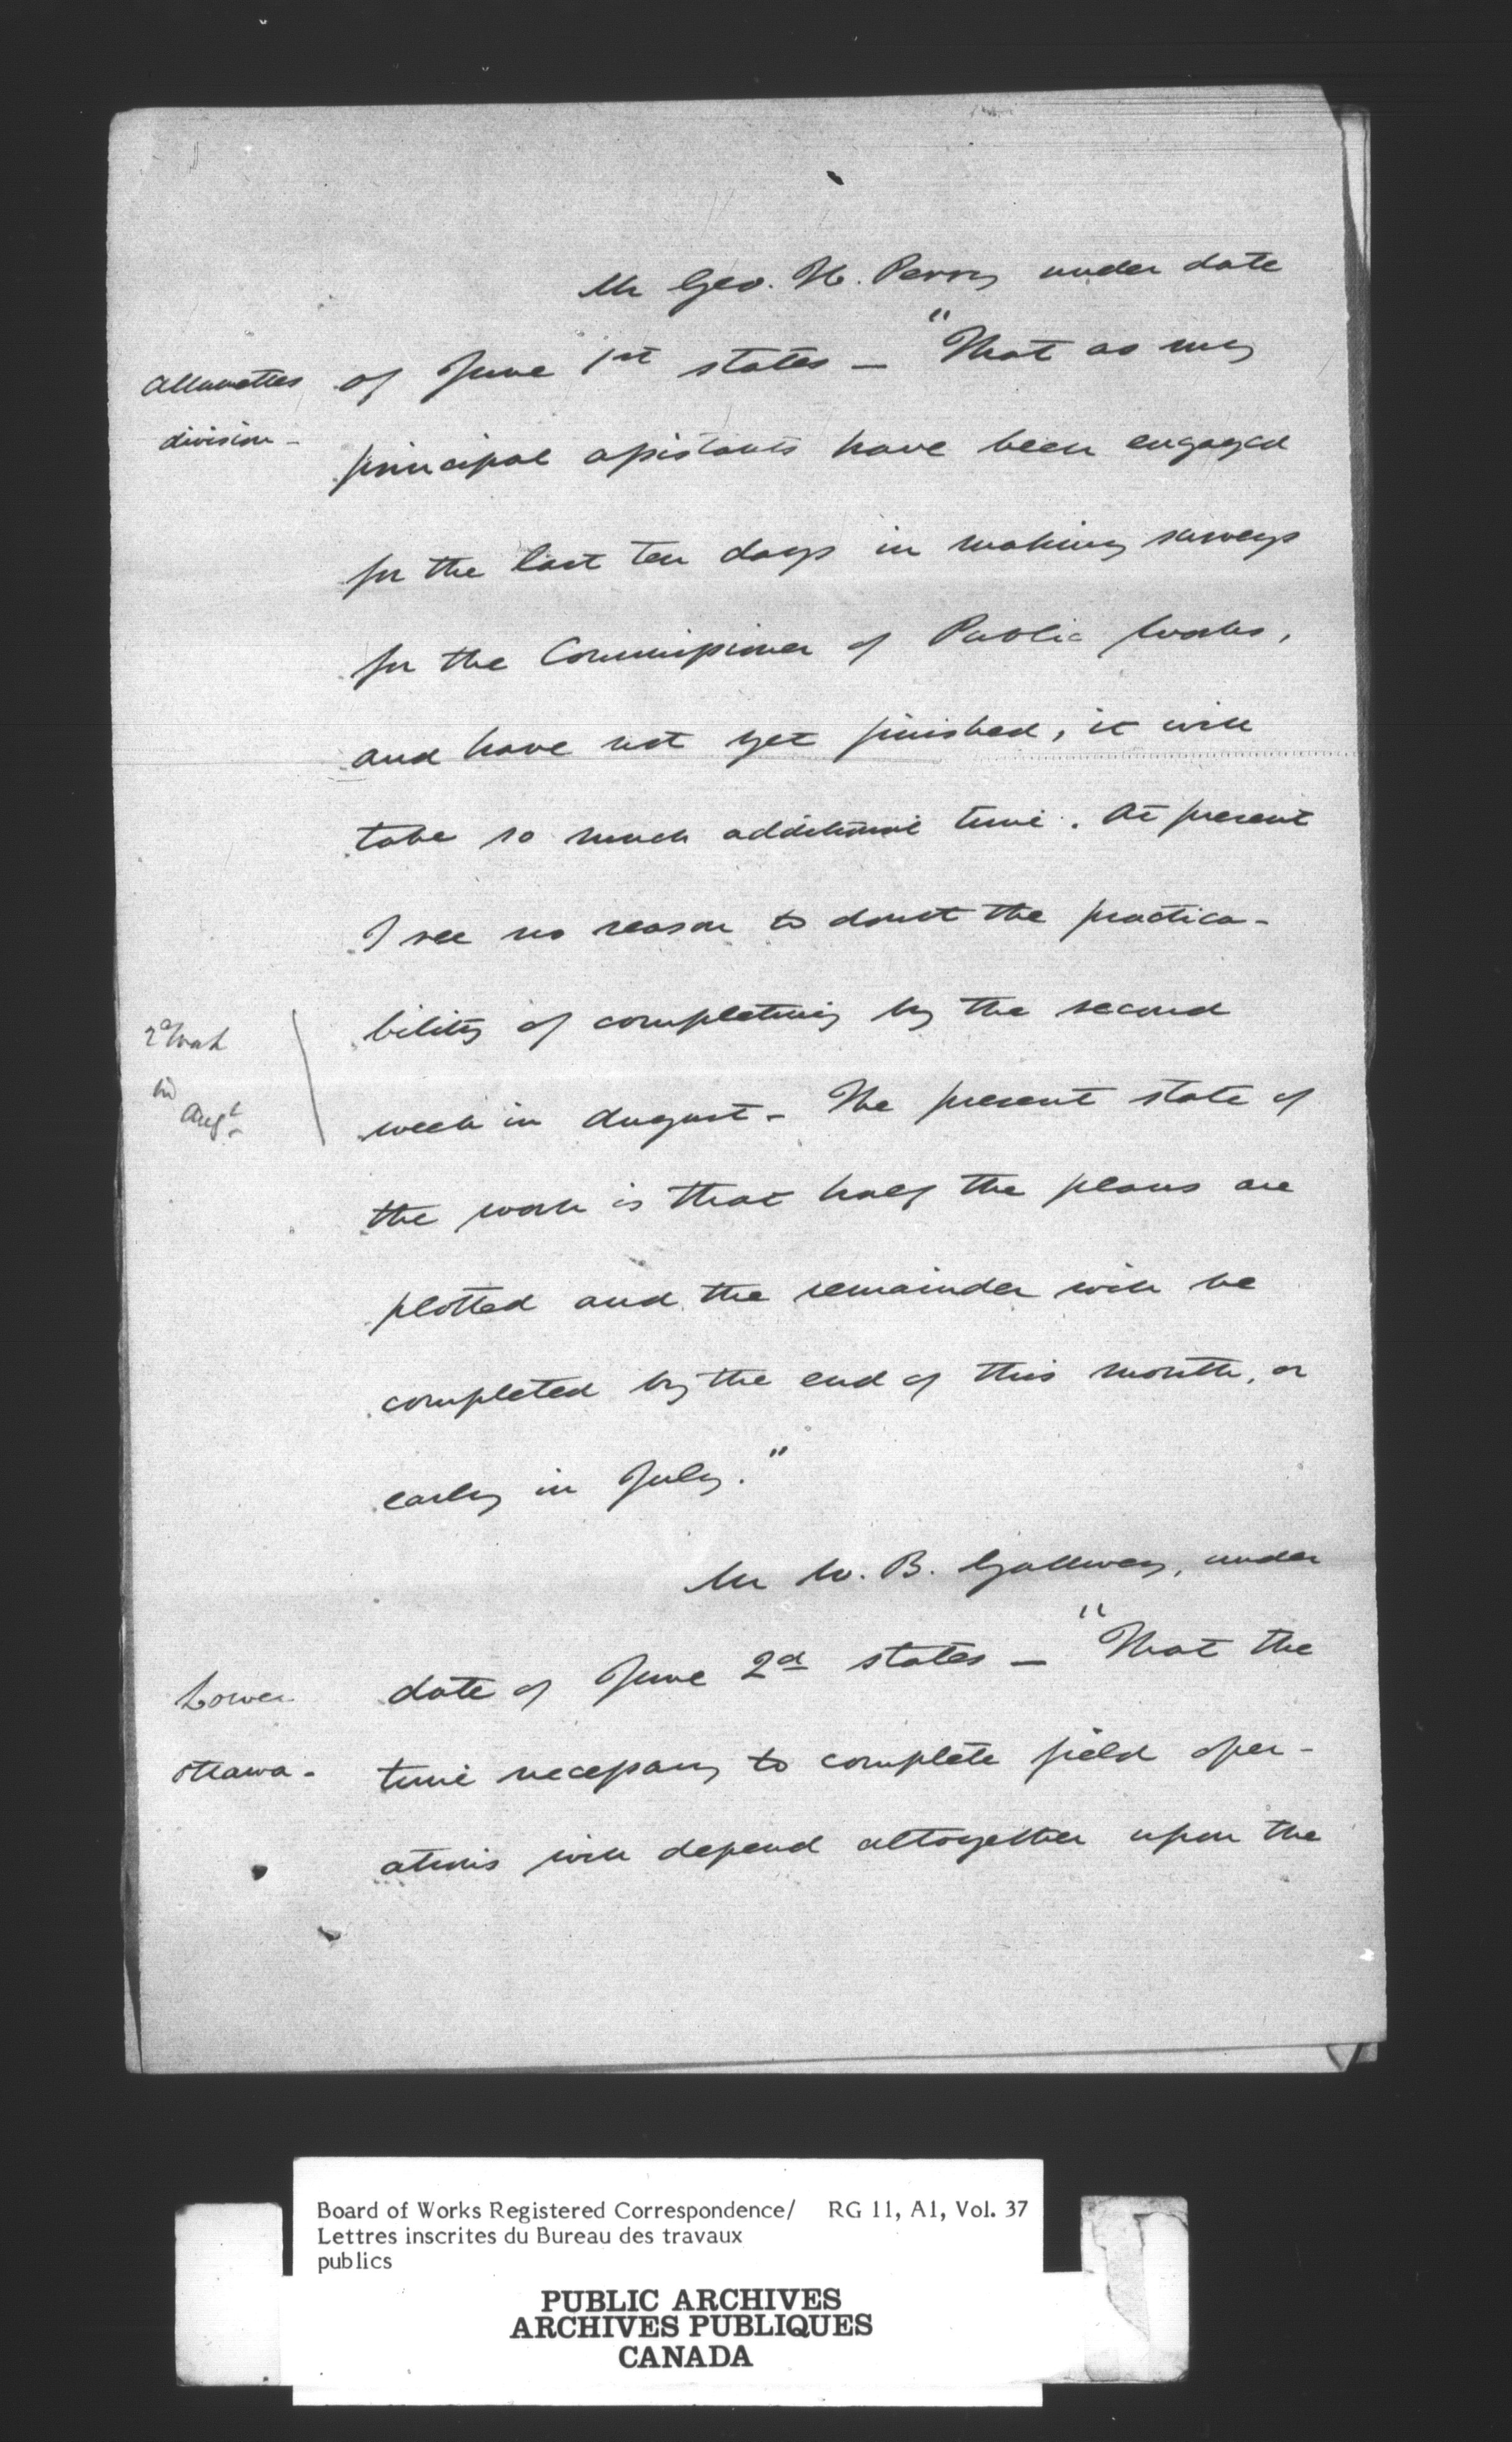 Mr Geo. H. Perry under date
Allumettes
division -
of June 1st states - "That as my
principal assistants have been engaged
for the last ten days in making surveys
for the Commissioner of Public Works,
and have not yet finished, it will
take so much additional time. At present
I see no reason to doubt the practica-
bility of completing by the second
2d Week
in
Augt
week in August - The present state of
the work is that half the plans are
plotted and the remainder will be
completed by the end of this month, or
early in July."
Mr W. B. Gallwey, under
Lower
Ottawa -
date of June 2d states - "That the
time necessary to complete field oper-
ations will depend altogether upon the
Board of Works Registered Correspondence/ RG 11, A1, Vol. 37
Lettres inscrites du Bureau des travaux
publics
PUBLIC ARCHIVES
ARCHIVES PUBLIQUES
CANADA